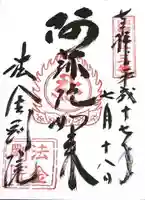 奉拝 平成十七年
七月十八日
阿弥陀如来
法金剛院
法金